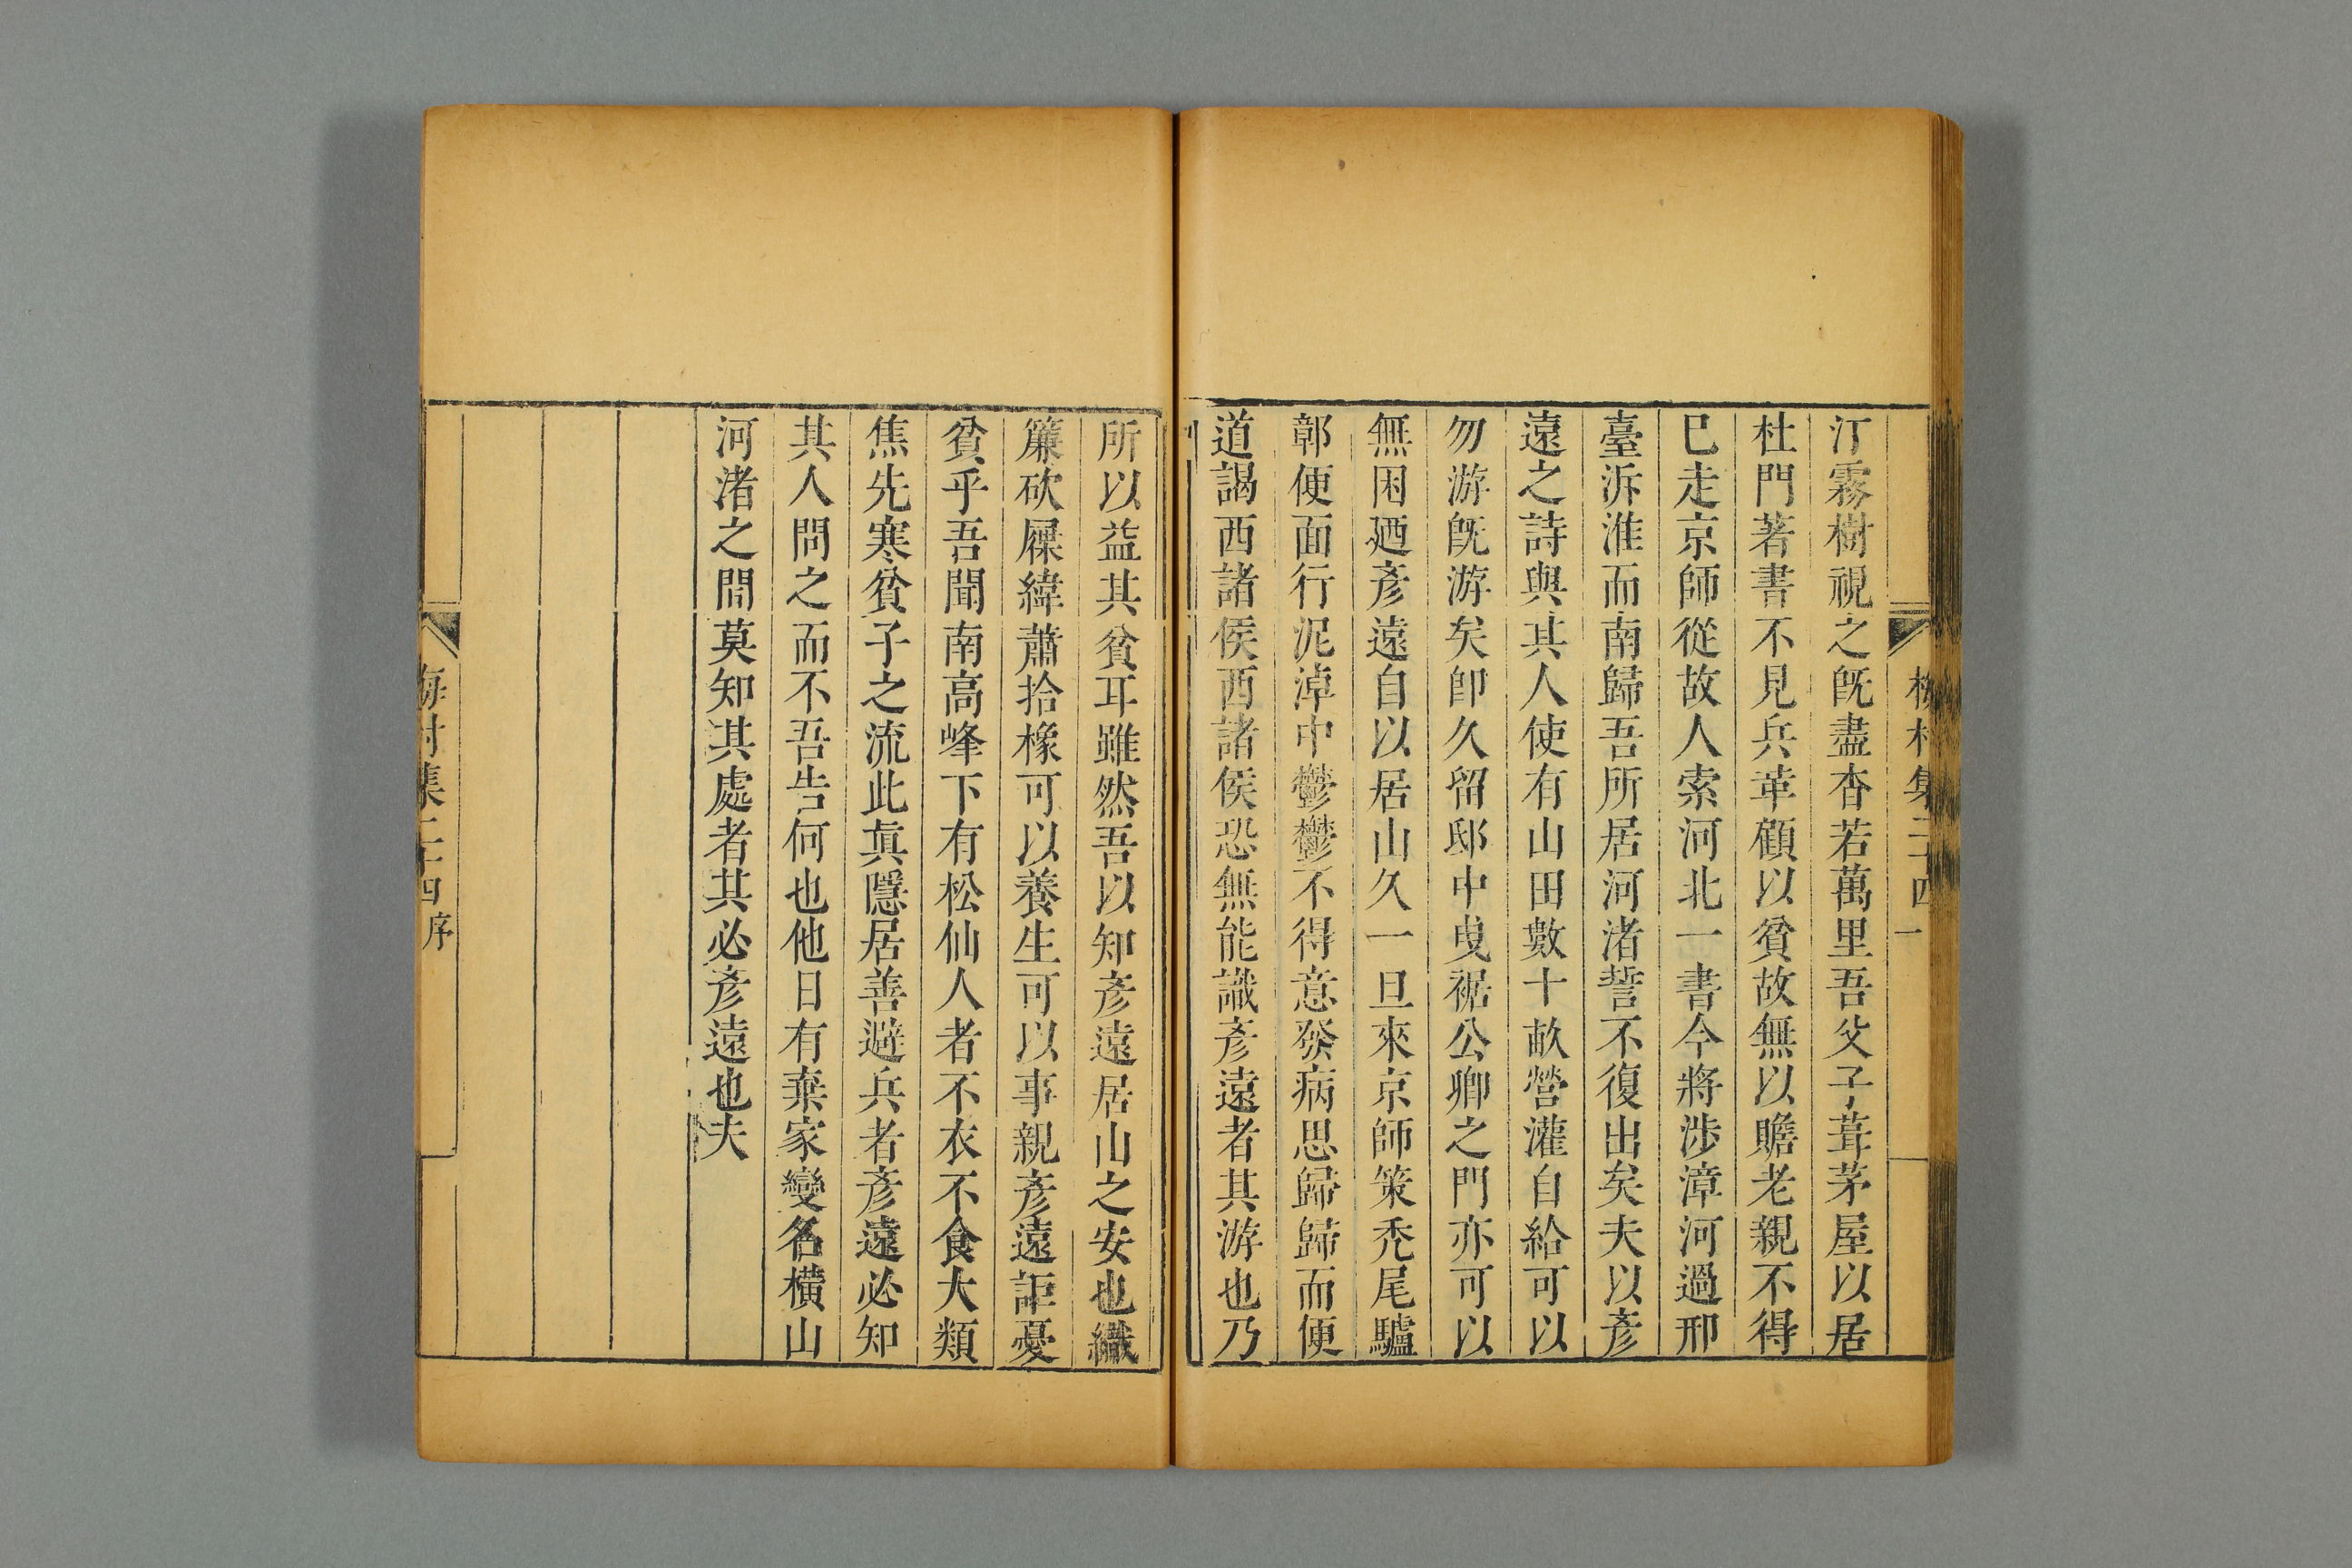 梅村集二十四
汀霧樹視之旣盡杳若萬里吾父子葺茅屋以居
杜門著書不見兵革顧以貧故無以贍老親不得
巳走京師從故人索河北一書今將涉漳河過邢
臺泝淮而南歸吾所居河渚誓不復出矣夫以彥
遠之詩與其人使有山田數十畝營灌自給可以
勿游旣游矣卽久留邸中曳裾公卿之門亦可以
無困廼彥遠自以居山久一旦來京師策禿尾驢
鄣便面行泥淖中鬱鬱不得意發病思歸歸而便
道謁西諸侯西諸侯恐無能識彥遠者其游也乃
所以益其貧耳雖然吾以知彥遠居山之安也織
簾砍屧緯蕭拾橡可以養生可以事親彥遠詎憂
貧乎吾聞南高峰下有松仙人者不衣不食大類
焦先寒貧子之流此眞隱居善避兵者彥遠必知
其人問之而不吾告何也他日有棄家變名橫山
河渚之間莫知其處者其必彥遠也夫
梅村集二十四序